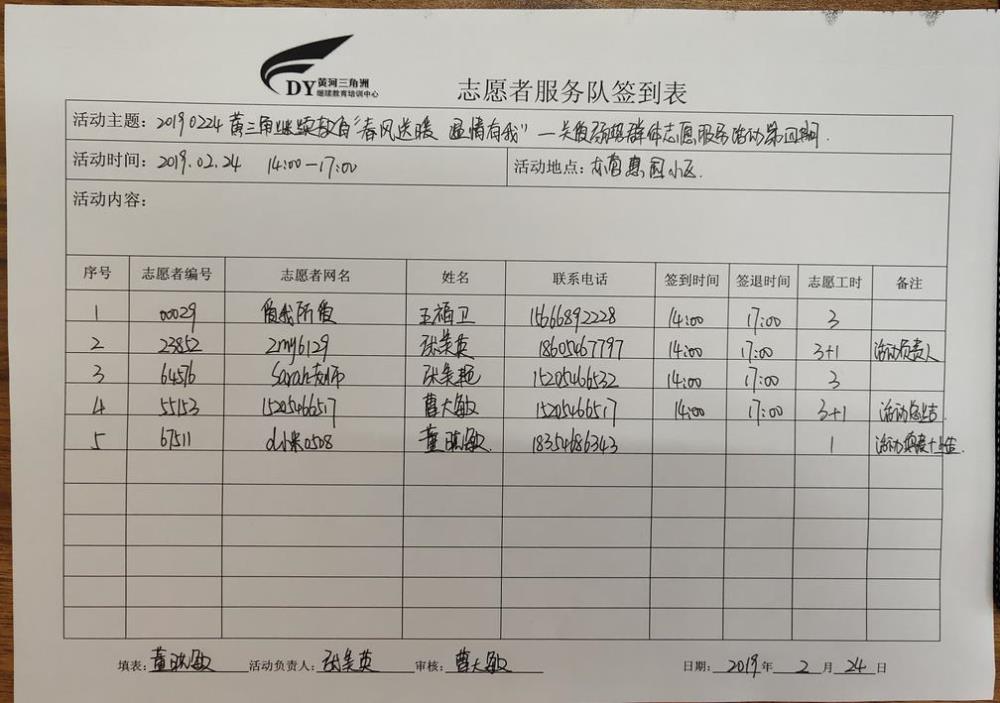 DY 黄河三角洲
继续教育培训中心
志愿者服务队签到表
活动主题：20190224黄三角继续教育"春风送暖 温情有我"—关爱弱势群体志愿服务活动第四期.
活动时间：2019.02.24 14:00—17:00 活动地点：东营惠园小区.
活动内容：
序号 志愿者编号 志愿者网名 姓名 联系电话 签到时间 签退时间 志愿工时 备注
1 00029 爱我所爱 王福卫 15666892228 14:00 17:00 3
2 23852 zmy6129 张美英 18605467797 14:00 17:00 3+1 活动负责人
3 64576 Sarah老师 张美艳 15205466532 14:00 17:00 3
4 55153 15205466517 曹大敏 15205466517 14:00 17:00 3+1 活动总结
5 67511 d小米0508 董 敏 18354686343 1 活动 +总结.
填表：董 敏 活动负责人：张美英 审核：曹大敏 日期：2019年2月24日